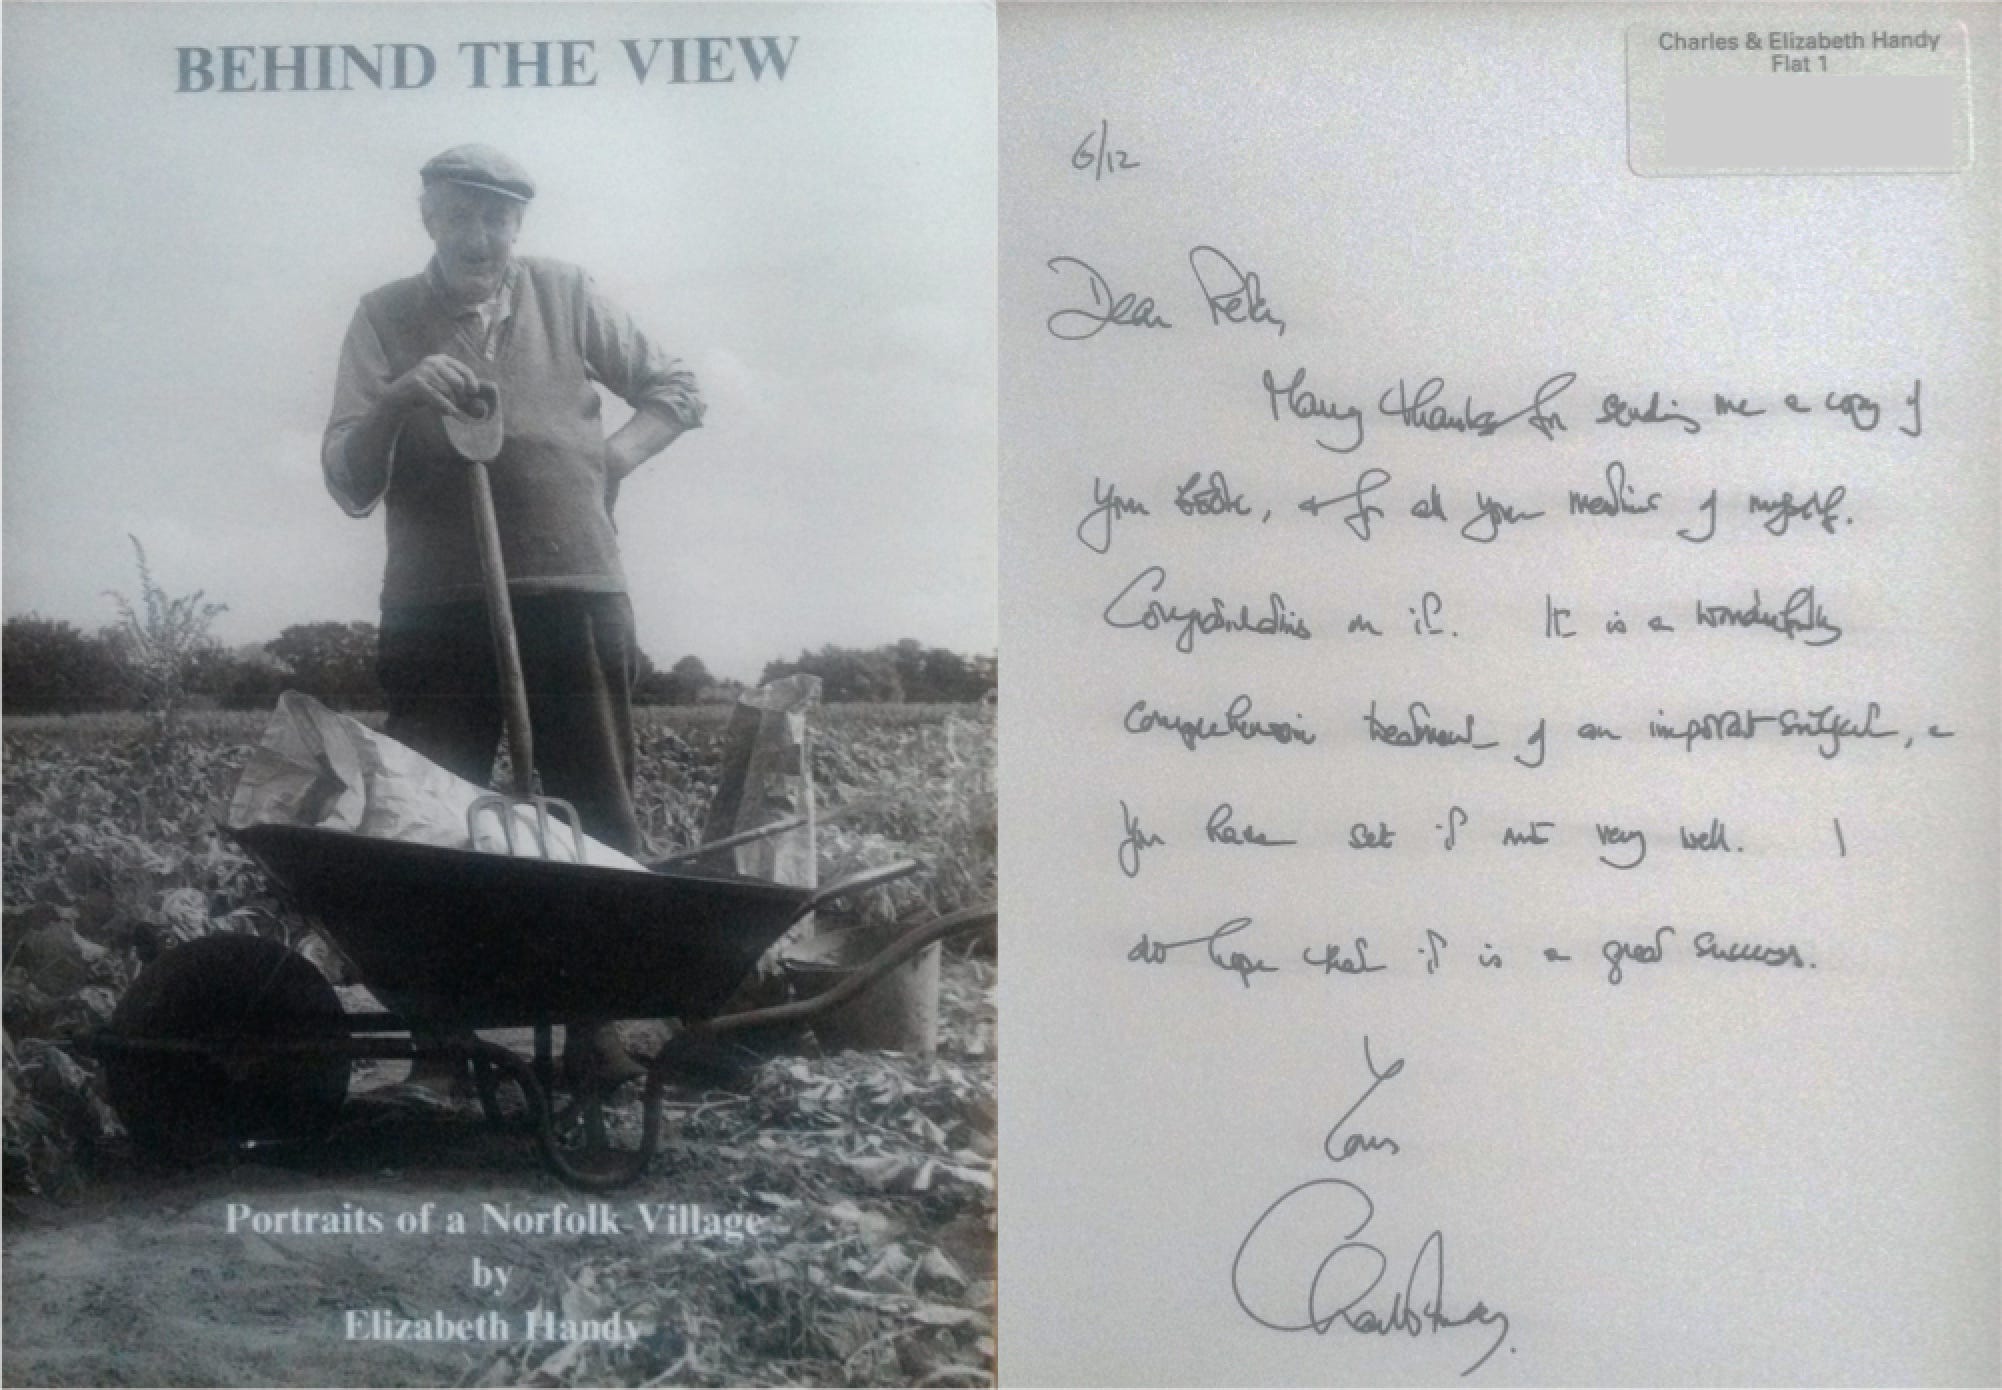 BEHIND THE VIEW
Portraits of a Norfolk Village
by
Elizabeth Handy
Charles & Elizabeth Handy
Flat 1
6/12
Dear Peter,
Many thanks for sending me a copy of
your book, & for all your mentions of myself.
Congratulations on it. It is a wonderfully
comprehensive treatment of an important subject, &
you have set it out very well. I
do hope that it is a great success.
Yours
Charles Handy.